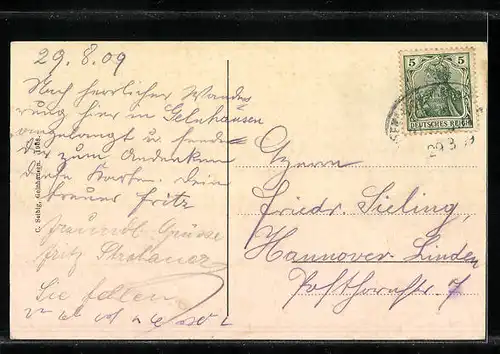 29.8.09
Nach herrlicher Wande
rung hier in Gelnhausen
angelangt u. sende
dir zum Andenken
diese Karte. Dein
treuer Fritz
freundl. Grüsse
Fritz
Sie fehlen
C. Selbig, Gelnhausen. 1908.
5 5
DEUTSCHES REICH
29 8
Herrn
Friedr. Sieling,
Hannover Linden
7